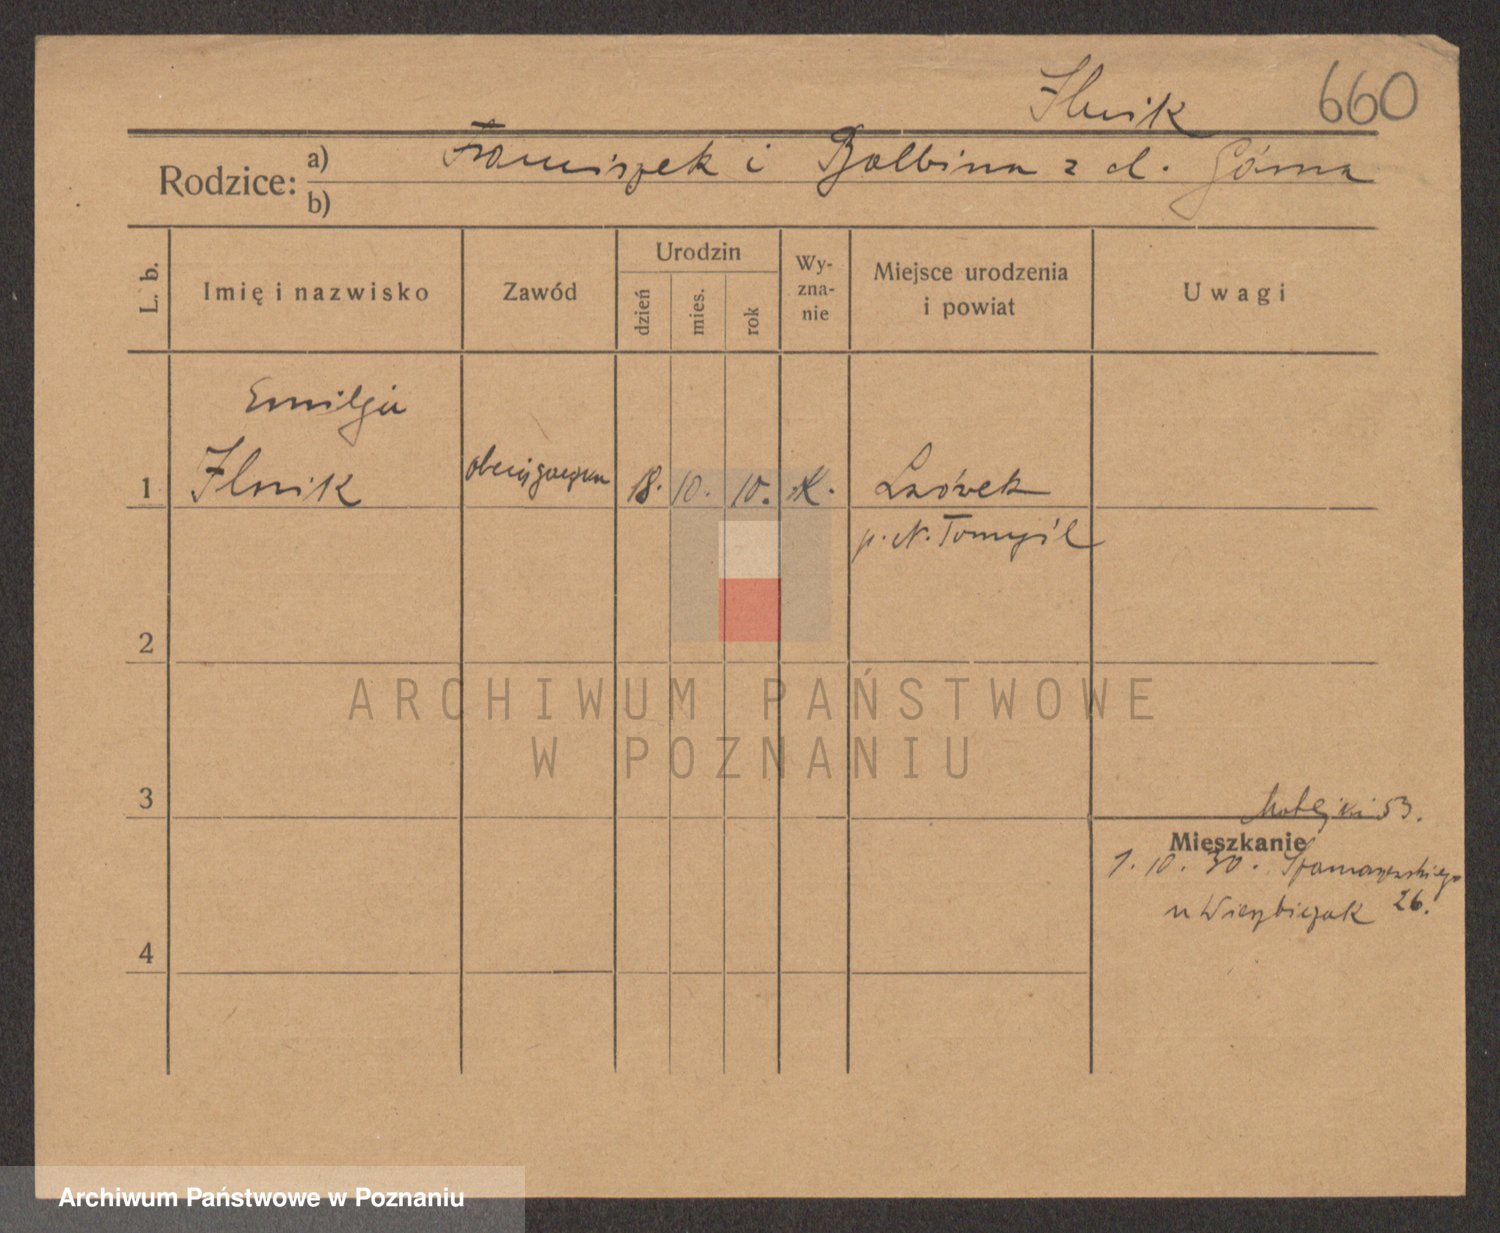 Ilnik 660
Rodzice: a) Franciszek i Balbina z d. Górna
b)
L. b. Imię i nazwisko Zawód Urodzin dzień mies. rok Wyznanie Miejsce urodzenia i powiat Uwagi
Emilja
1 Ilnik 18. 10. 10. K. Lwówek
p. N. Tomyśl
2
ARCHIWUM PAŃSTWOWE
W POZNANIU
3
Matejki 53.
Mieszkanie
1. 10. 30.
u Wierzbiczak 26.
4
Archiwum Państwowe w Poznaniu